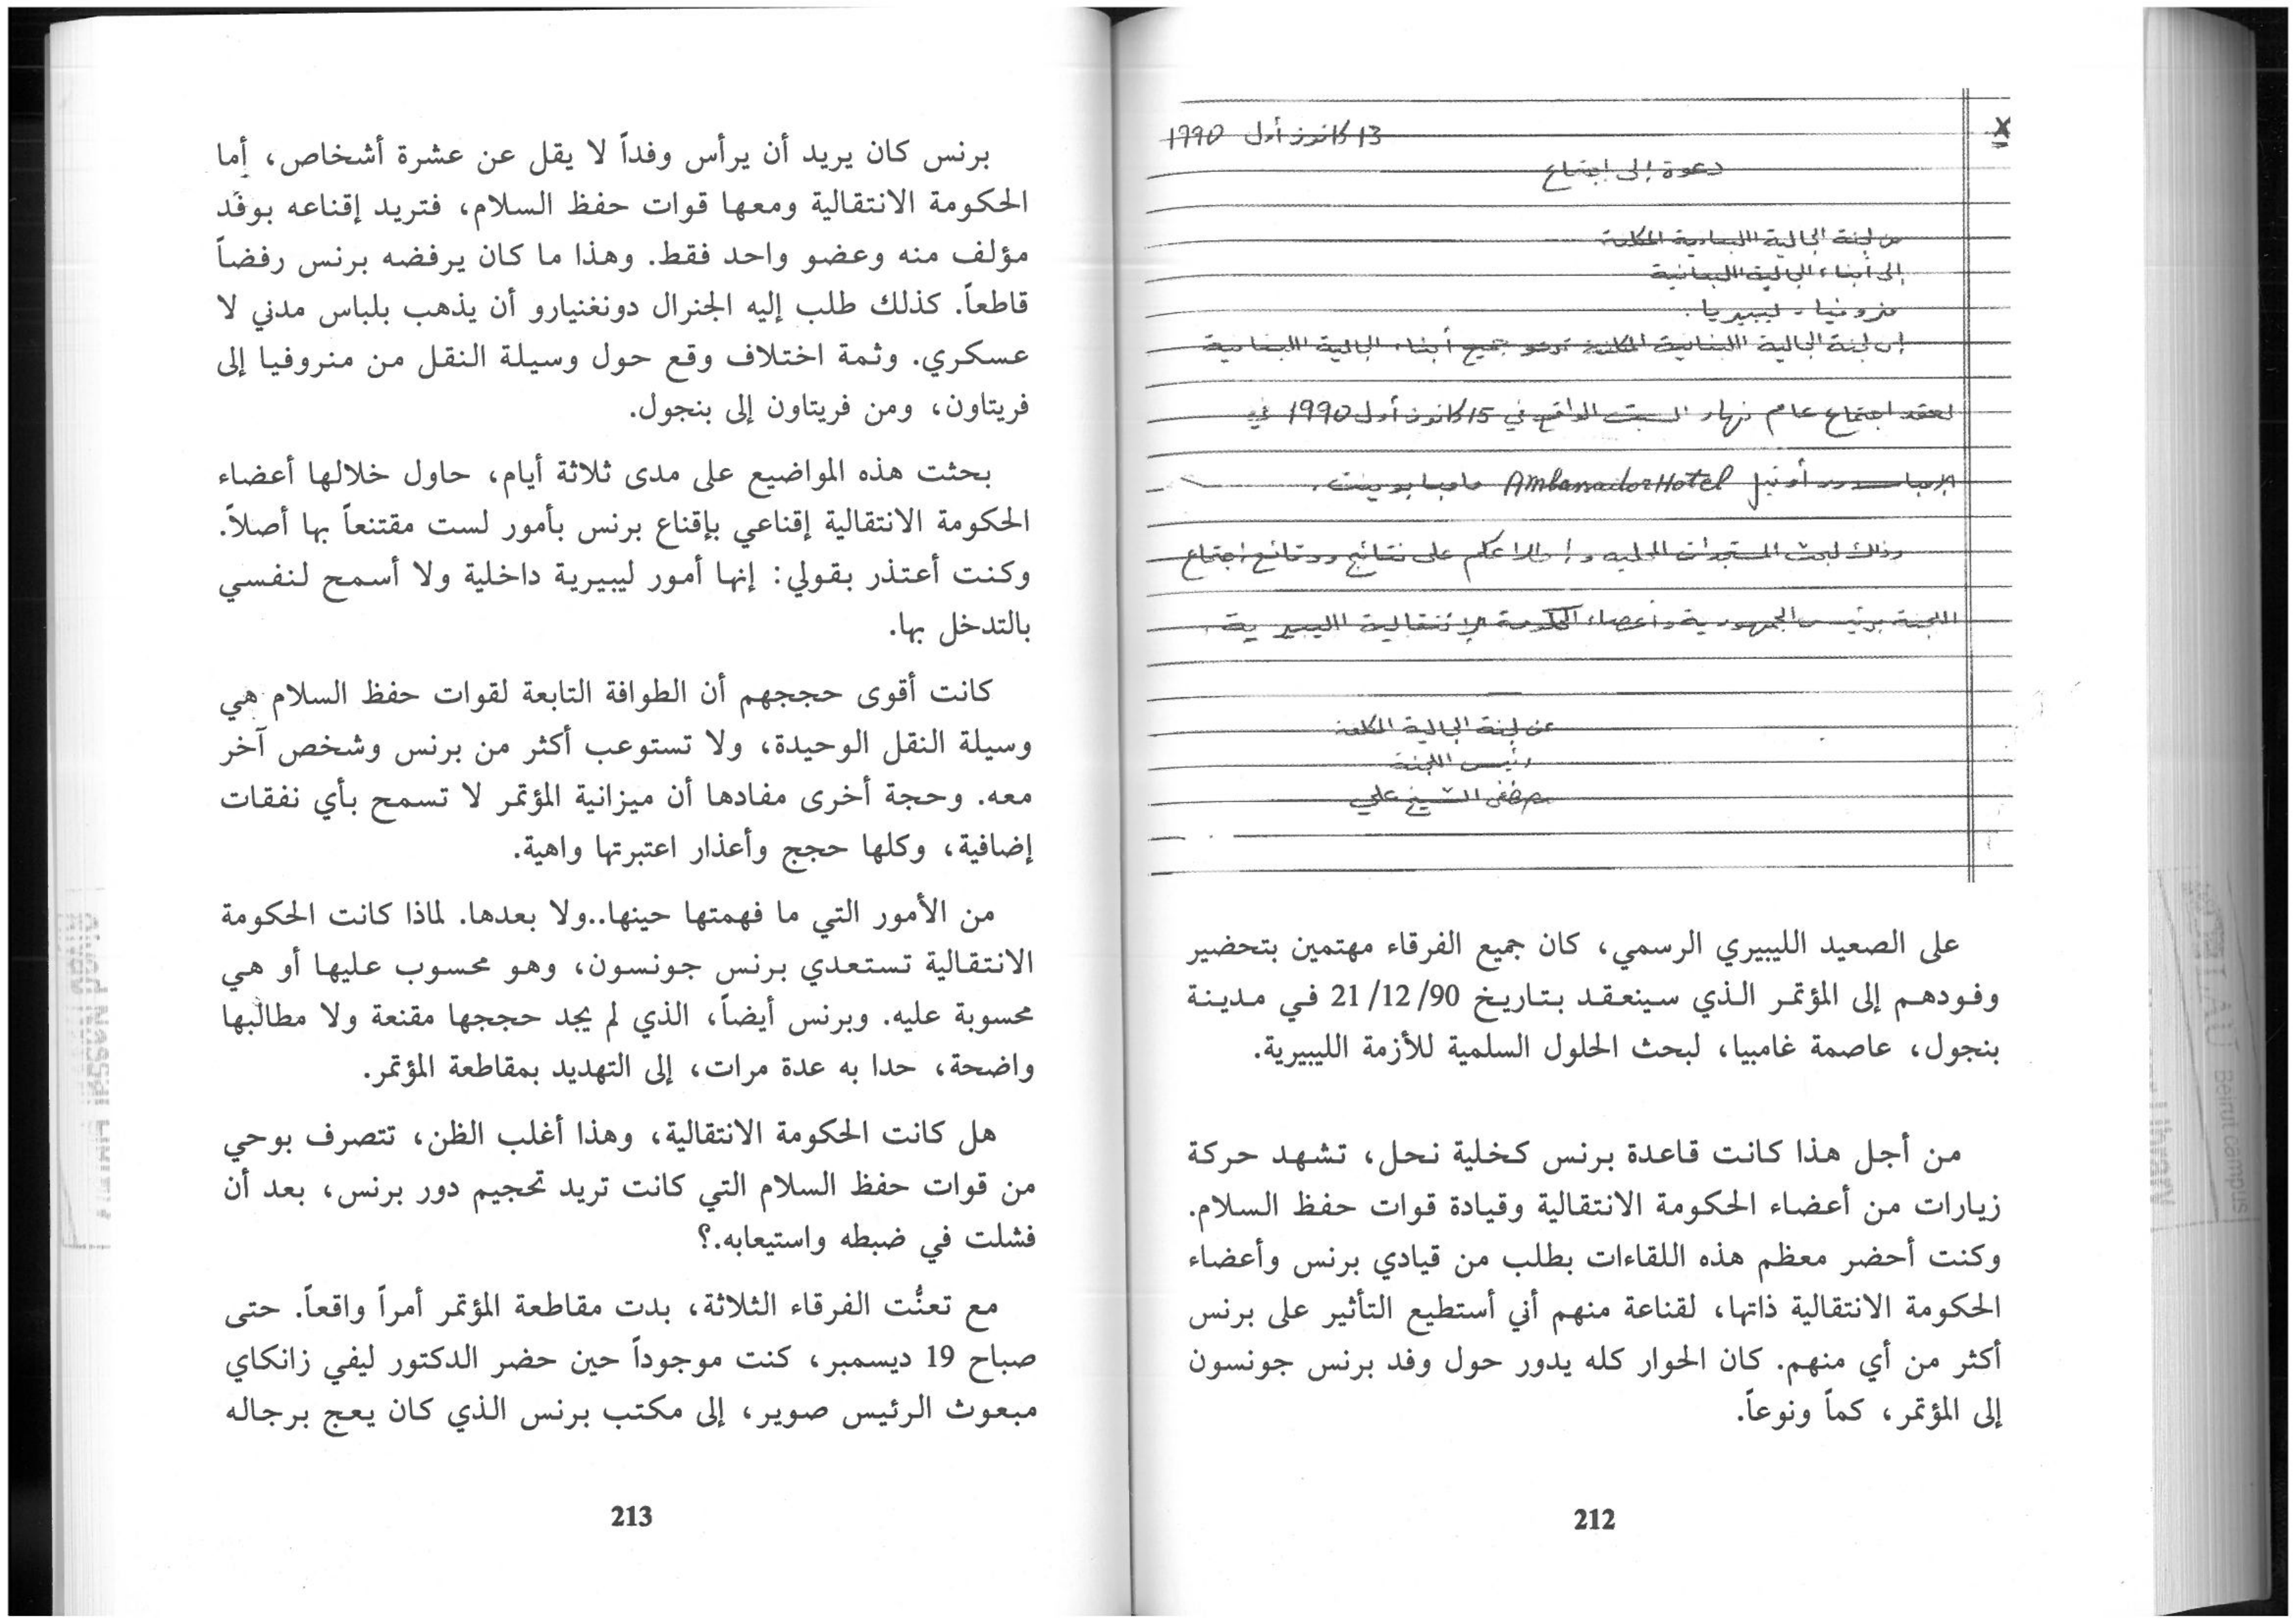 x
13 كانون أول 1990
دعوة إلى اجتماع
من لجنة الجالية اللبنانية المكلفة
إلى أبناء الجالية اللبنانية
منروفيا - ليبيريا.
إن لجنة الجالية اللبنانية المكلفة تدعو جميع أبناء الجالية اللبنانية
لعقد اجتماع عام نهار السبت الواقع في 15 كانون أول 1990 في
أوتيل Ambassador Hotel مامبا بوينت.
وذلك لبحث المستجدات المحلية وإطلاعكم على نتائج ووقائع اجتماع
اللجنة برئيس الجمهورية وأعضاء الحكومة الإنتقالية الليبيرية.
عن لجنة الجالية المكلفة
رئيس اللجنة
مصطفى الشيخ علي
على الصعيد الليبيري الرسمي، كان جميع الفرقاء مهتمين بتحضير
وفودهم إلى المؤتمر الذي سينعقد بتاريخ 21/12/90 في مدينة
بنجول، عاصمة غامبيا، لبحث الحلول السلمية للأزمة الليبيرية.
من أجل هذا كانت قاعدة برنس كخلية نحل، تشهد حركة
زيارات من أعضاء الحكومة الانتقالية وقيادة قوات حفظ السلام.
وكنت أحضر معظم هذه اللقاءات بطلب من قيادي برنس وأعضاء
الحكومة الانتقالية ذاتها، لقناعة منهم أني أستطيع التأثير على برنس
أكثر من أي منهم. كان الحوار كله يدور حول وفد برنس جونسون
إلى المؤتمر، كماً ونوعاً.
212
برنس كان يريد أن يرأس وفداً لا يقل عن عشرة أشخاص، أما
الحكومة الانتقالية ومعها قوات حفظ السلام، فتريد إقناعه بوفد
مؤلف منه وعضو واحد فقط. وهذا ما كان يرفضه برنس رفضاً
قاطعاً. كذلك طلب إليه الجنرال دونغنيارو أن يذهب بلباس مدني لا
عسكري. وثمة اختلاف وقع حول وسيلة النقل من منروفيا إلى
فريتاون، ومن فريتاون إلى بنجول.
بحثت هذه المواضيع على مدى ثلاثة أيام، حاول خلالها أعضاء
الحكومة الانتقالية إقناعي بإقناع برنس بأمور لست مقتنعاً بها أصلاً.
وكنت أعتذر بقولي: إنها أمور ليبيرية داخلية ولا أسمح لنفسي
بالتدخل بها.
كانت أقوى حججهم أن الطوافة التابعة لقوات حفظ السلام هي
وسيلة النقل الوحيدة، ولا تستوعب أكثر من برنس وشخص آخر
معه. وحجة أخرى مفادها أن ميزانية المؤتمر لا تسمح بأي نفقات
إضافية، وكلها حجج وأعذار اعتبرتها واهية.
من الأمور التي ما فهمتها حينها..ولا بعدها. لماذا كانت الحكومة
الانتقالية تستعدي برنس جونسون، وهو محسوب عليها أو هي
محسوبة عليه. وبرنس أيضاً، الذي لم يجد حججها مقنعة ولا مطالبها
واضحة، حدا به عدة مرات، إلى التهديد بمقاطعة المؤتمر.
هل كانت الحكومة الانتقالية، وهذا أغلب الظن، تتصرف بوحي
من قوات حفظ السلام التي كانت تريد تحجيم دور برنس، بعد أن
فشلت في ضبطه واستيعابه.؟
مع تعنُّت الفرقاء الثلاثة، بدت مقاطعة المؤتمر أمراً واقعاً. حتى
صباح 19 ديسمبر، كنت موجوداً حين حضر الدكتور ليفي زانكاي
مبعوث الرئيس صوير، إلى مكتب برنس الذي كان يعج برجاله
213
LAU
Beirut campus